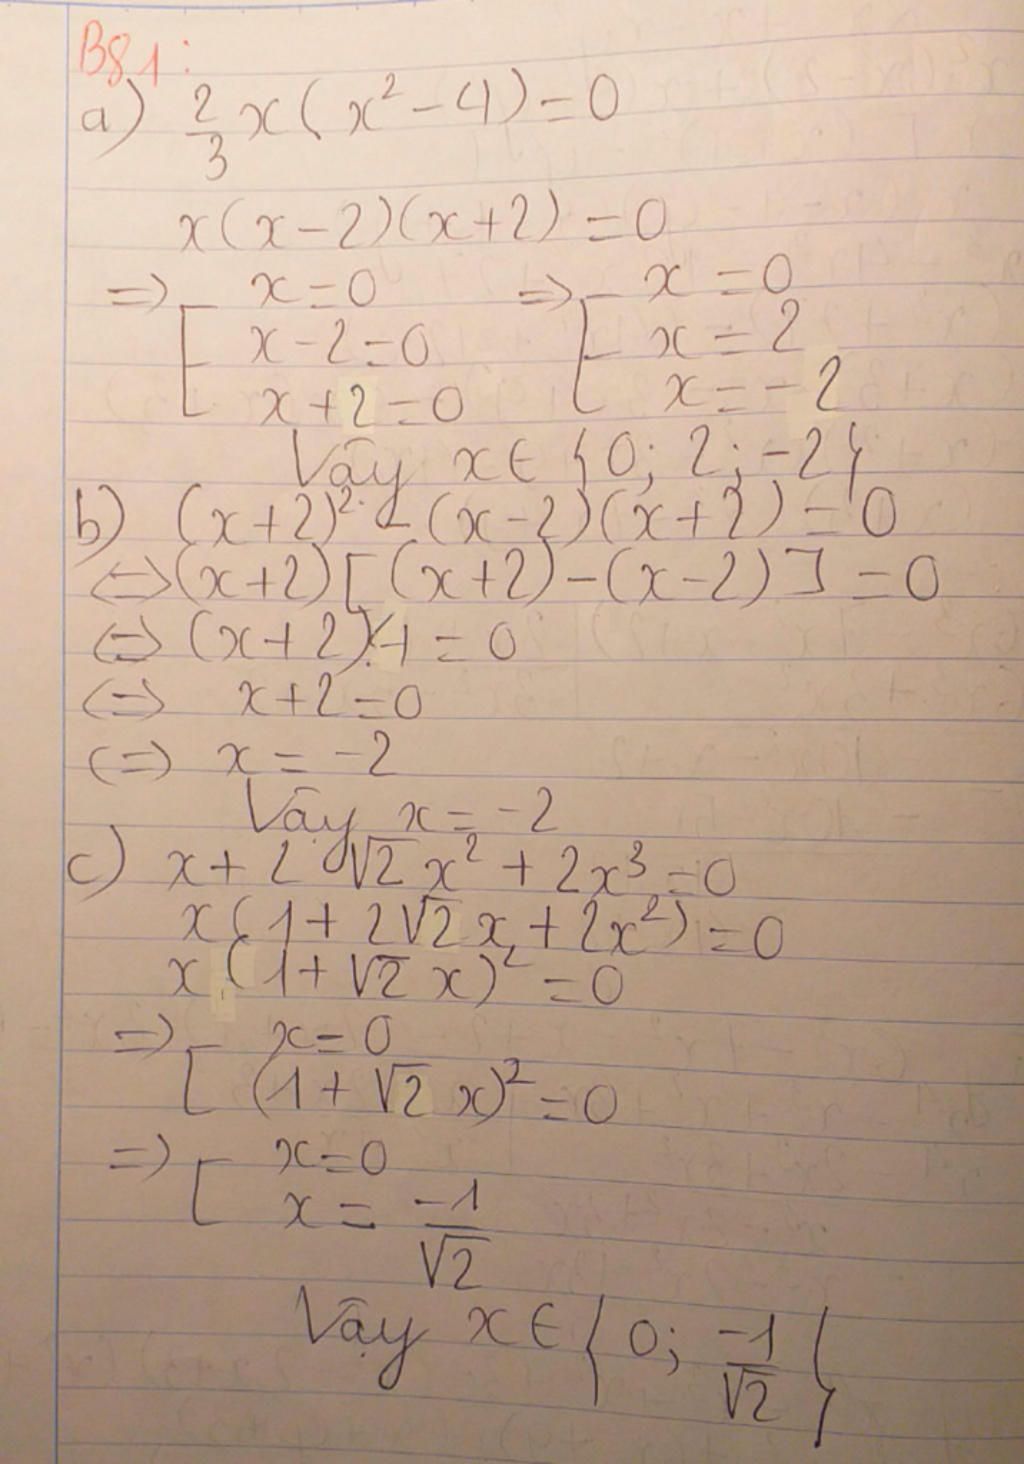 B81:
a) 2/3 x(x² - 4) = 0
x(x-2)(x+2) = 0
=> [ x = 0 => [ x = 0
x - 2 = 0 x = 2
x + 2 = 0 x = -2
Vậy x ∈ {0; 2; -2}
b) (x+2)² - (x-2)(x+2) = 0
<=> (x+2)[(x+2) - (x-2)] = 0
<=> (x+2).4 = 0
<=> x + 2 = 0
<=> x = -2
Vậy x = -2
c) x + 2√2x² + 2x³ = 0
x(1 + 2√2x + 2x²) = 0
x(1 + √2x)² = 0
=> [ x = 0
(1 + √2x)² = 0
=> [ x = 0
x = -1/√2
Vậy x ∈ {0; -1/√2}